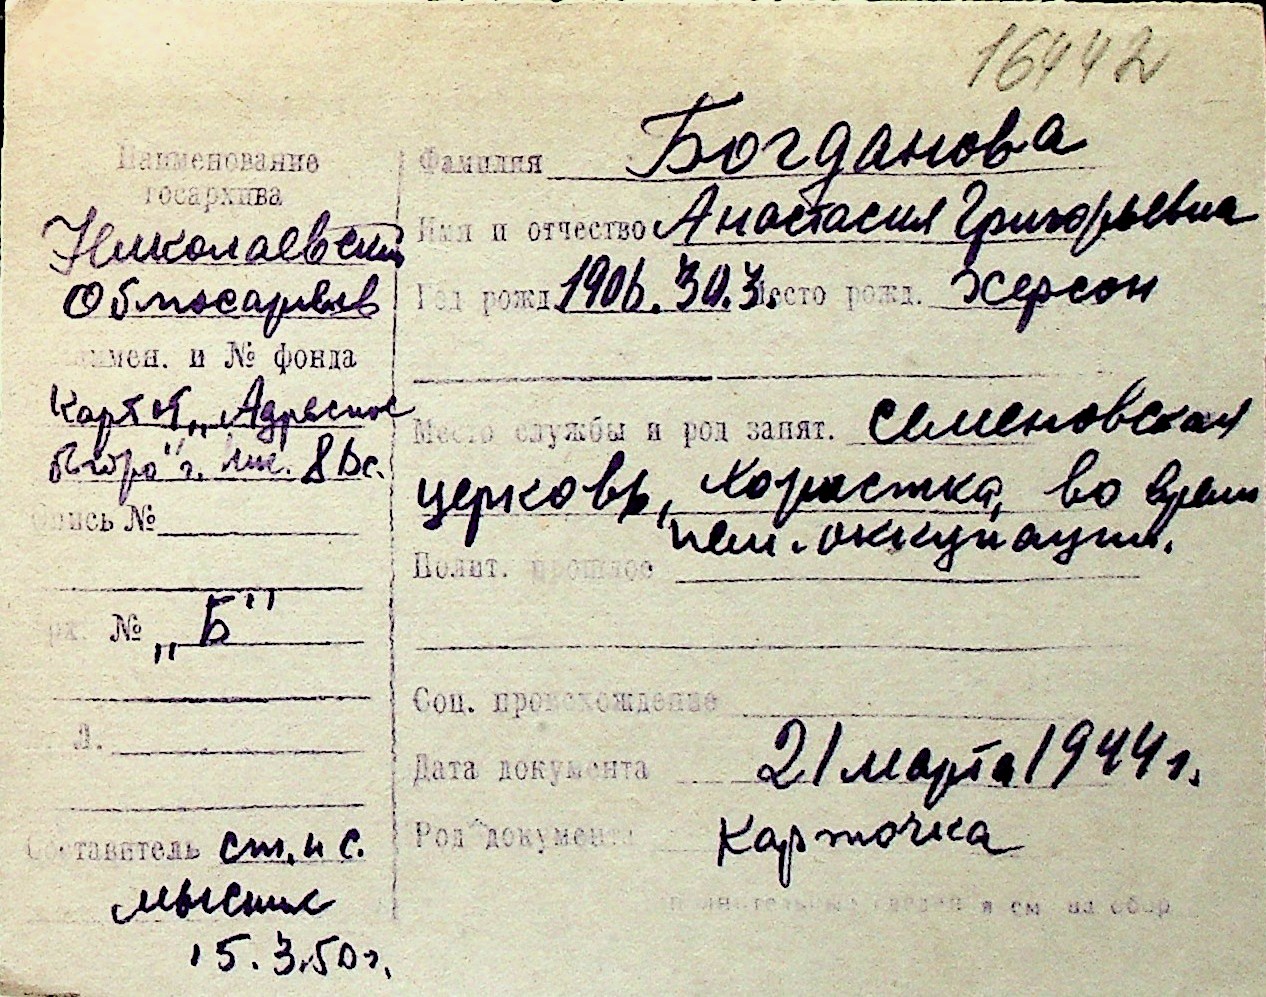 16442
Наименование
госархива
Николаевский
Облгосархив
наимен. и № фонда
Картот. „Адресное
бюро" г. Ник.
Опись №
арх. № „Б"
Л.
Составитель ст. н с.
мысник
15.3.50г.
Фамилия Богданова
Имя и отчество Анастасия Григорьевна
Год рожд. 1906. 30.3. Место рожд. Херсон
Место службы и род занят. Семеновская
церковь, хористка, во время
нем. оккупации.
Полит. прошлое
Соц. происхождение
Дата документа 21 марта 1944 г.
Род документа Карточка
дополнительные сведения см на обор